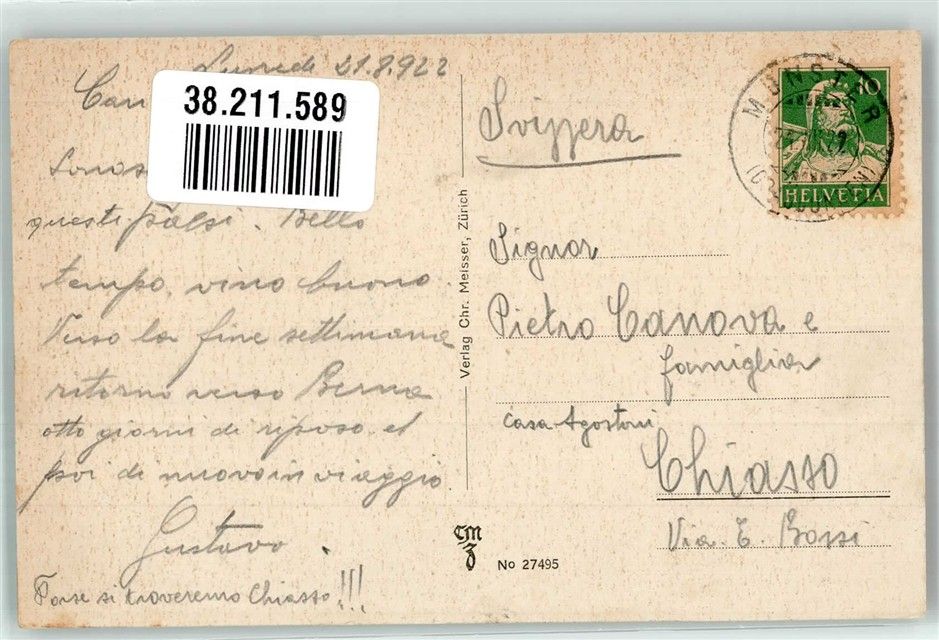 Lunedi 21.8.922
Cari
38.211.589
questi paesi. Bello
tempo, vino buono.
Verso la fine settimana
ritorno verso Berna
otto giorni di riposo et
poi di nuovo in viaggio
Gustavo.
Forse si troveremo Chiasso!!!
Verlag Chr. Meisser, Zürich
CM
Z
No 27495
Svizzera
10
HELVETIA
MÜNSTER
Signor
Pietro Canova e
famiglia
casa Agostoni
Chiasso
Via E. Bossi